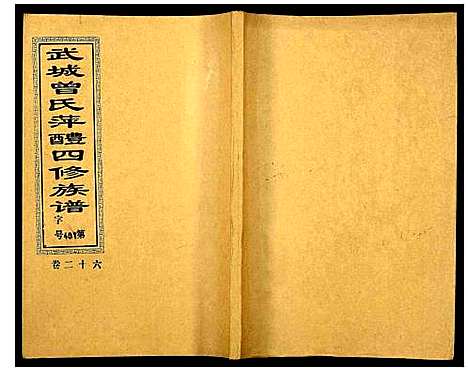 武城曾氏萍醴四修族谱
字
第404号
卷二十六